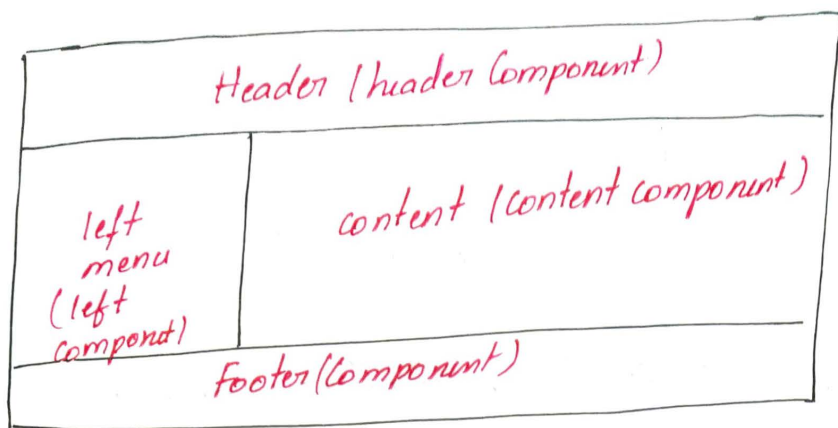 Header (header Component)
left
menu
(left
componet)
content (content component)
Footer (Component)